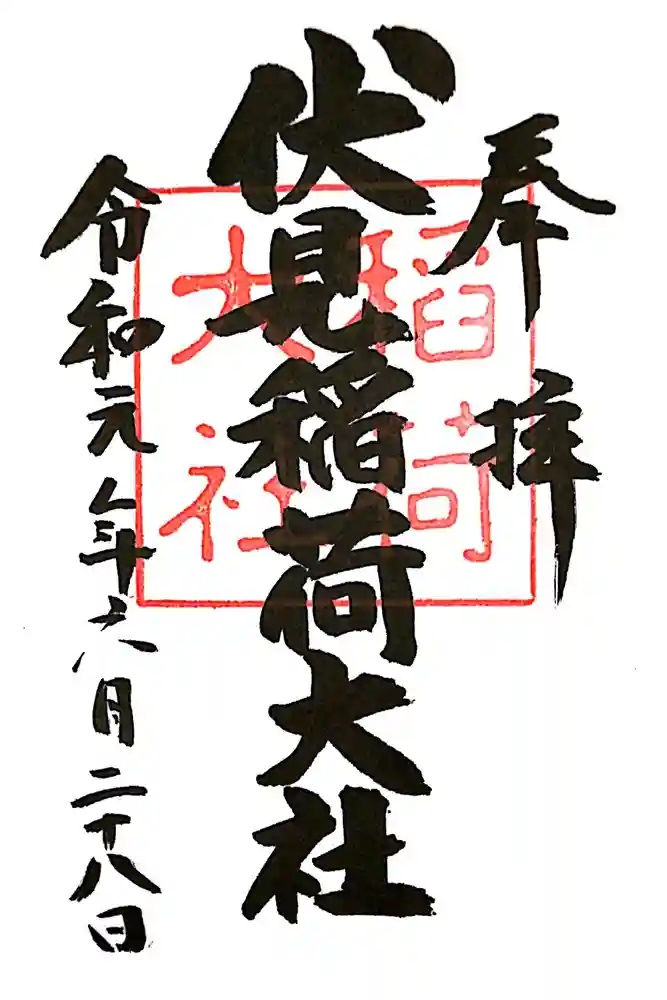 奉拝
伏見稲荷大社
稲荷
大社
令和元年六月二十八日